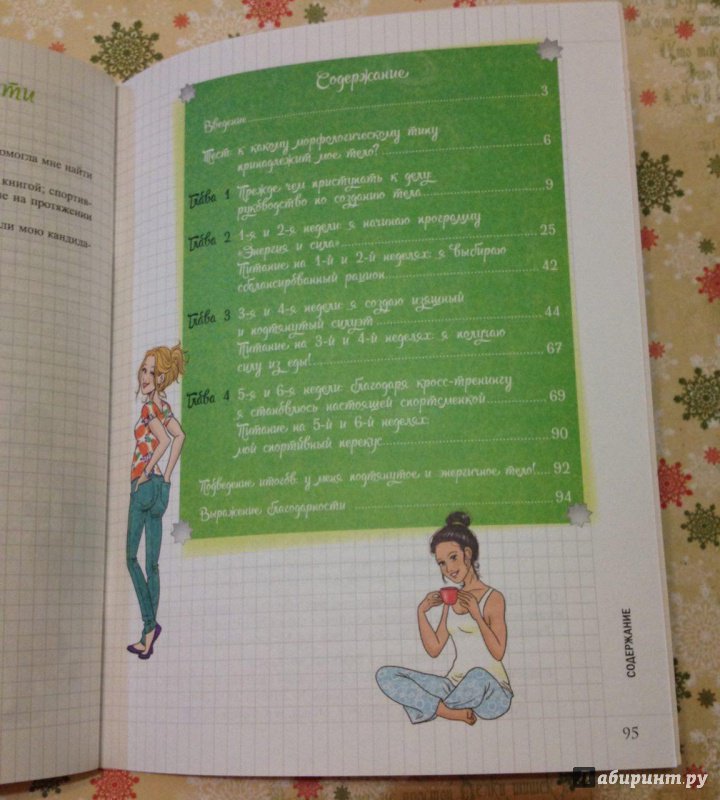 ти
омогла мне найти
книгой; спортив-
не на протяжении
ли мою кандида-
Содержание
Введение 3
Тест: к какому морфологическому типу
принадлежит мое тело? 6
Глава 1 Прежде чем приступать к делу:
руководство по созданию тела 9
Глава 2 1-я и 2-я недели: я начинаю программу
«Энергия и сила» 25
Питание на 1-й и 2-й неделях: я выбираю
сбалансированный рацион 42
Глава 3 3-я и 4-я недели: я создаю изящный
и подтянутый силуэт 44
Питание на 3-й и 4-й неделях: я получаю
силу из еды! 67
Глава 4 5-я и 6-я недели: благодаря кросс-тренингу
я становлюсь настоящей спортсменкой 69
Питание на 5-й и 6-й неделях:
мой спортивный перекус 90
Подведение итогов: у меня подтянутое и энергичное тело! 92
Выражение благодарности 94
СОДЕРЖАНИЕ
95
Лабиринт.ру